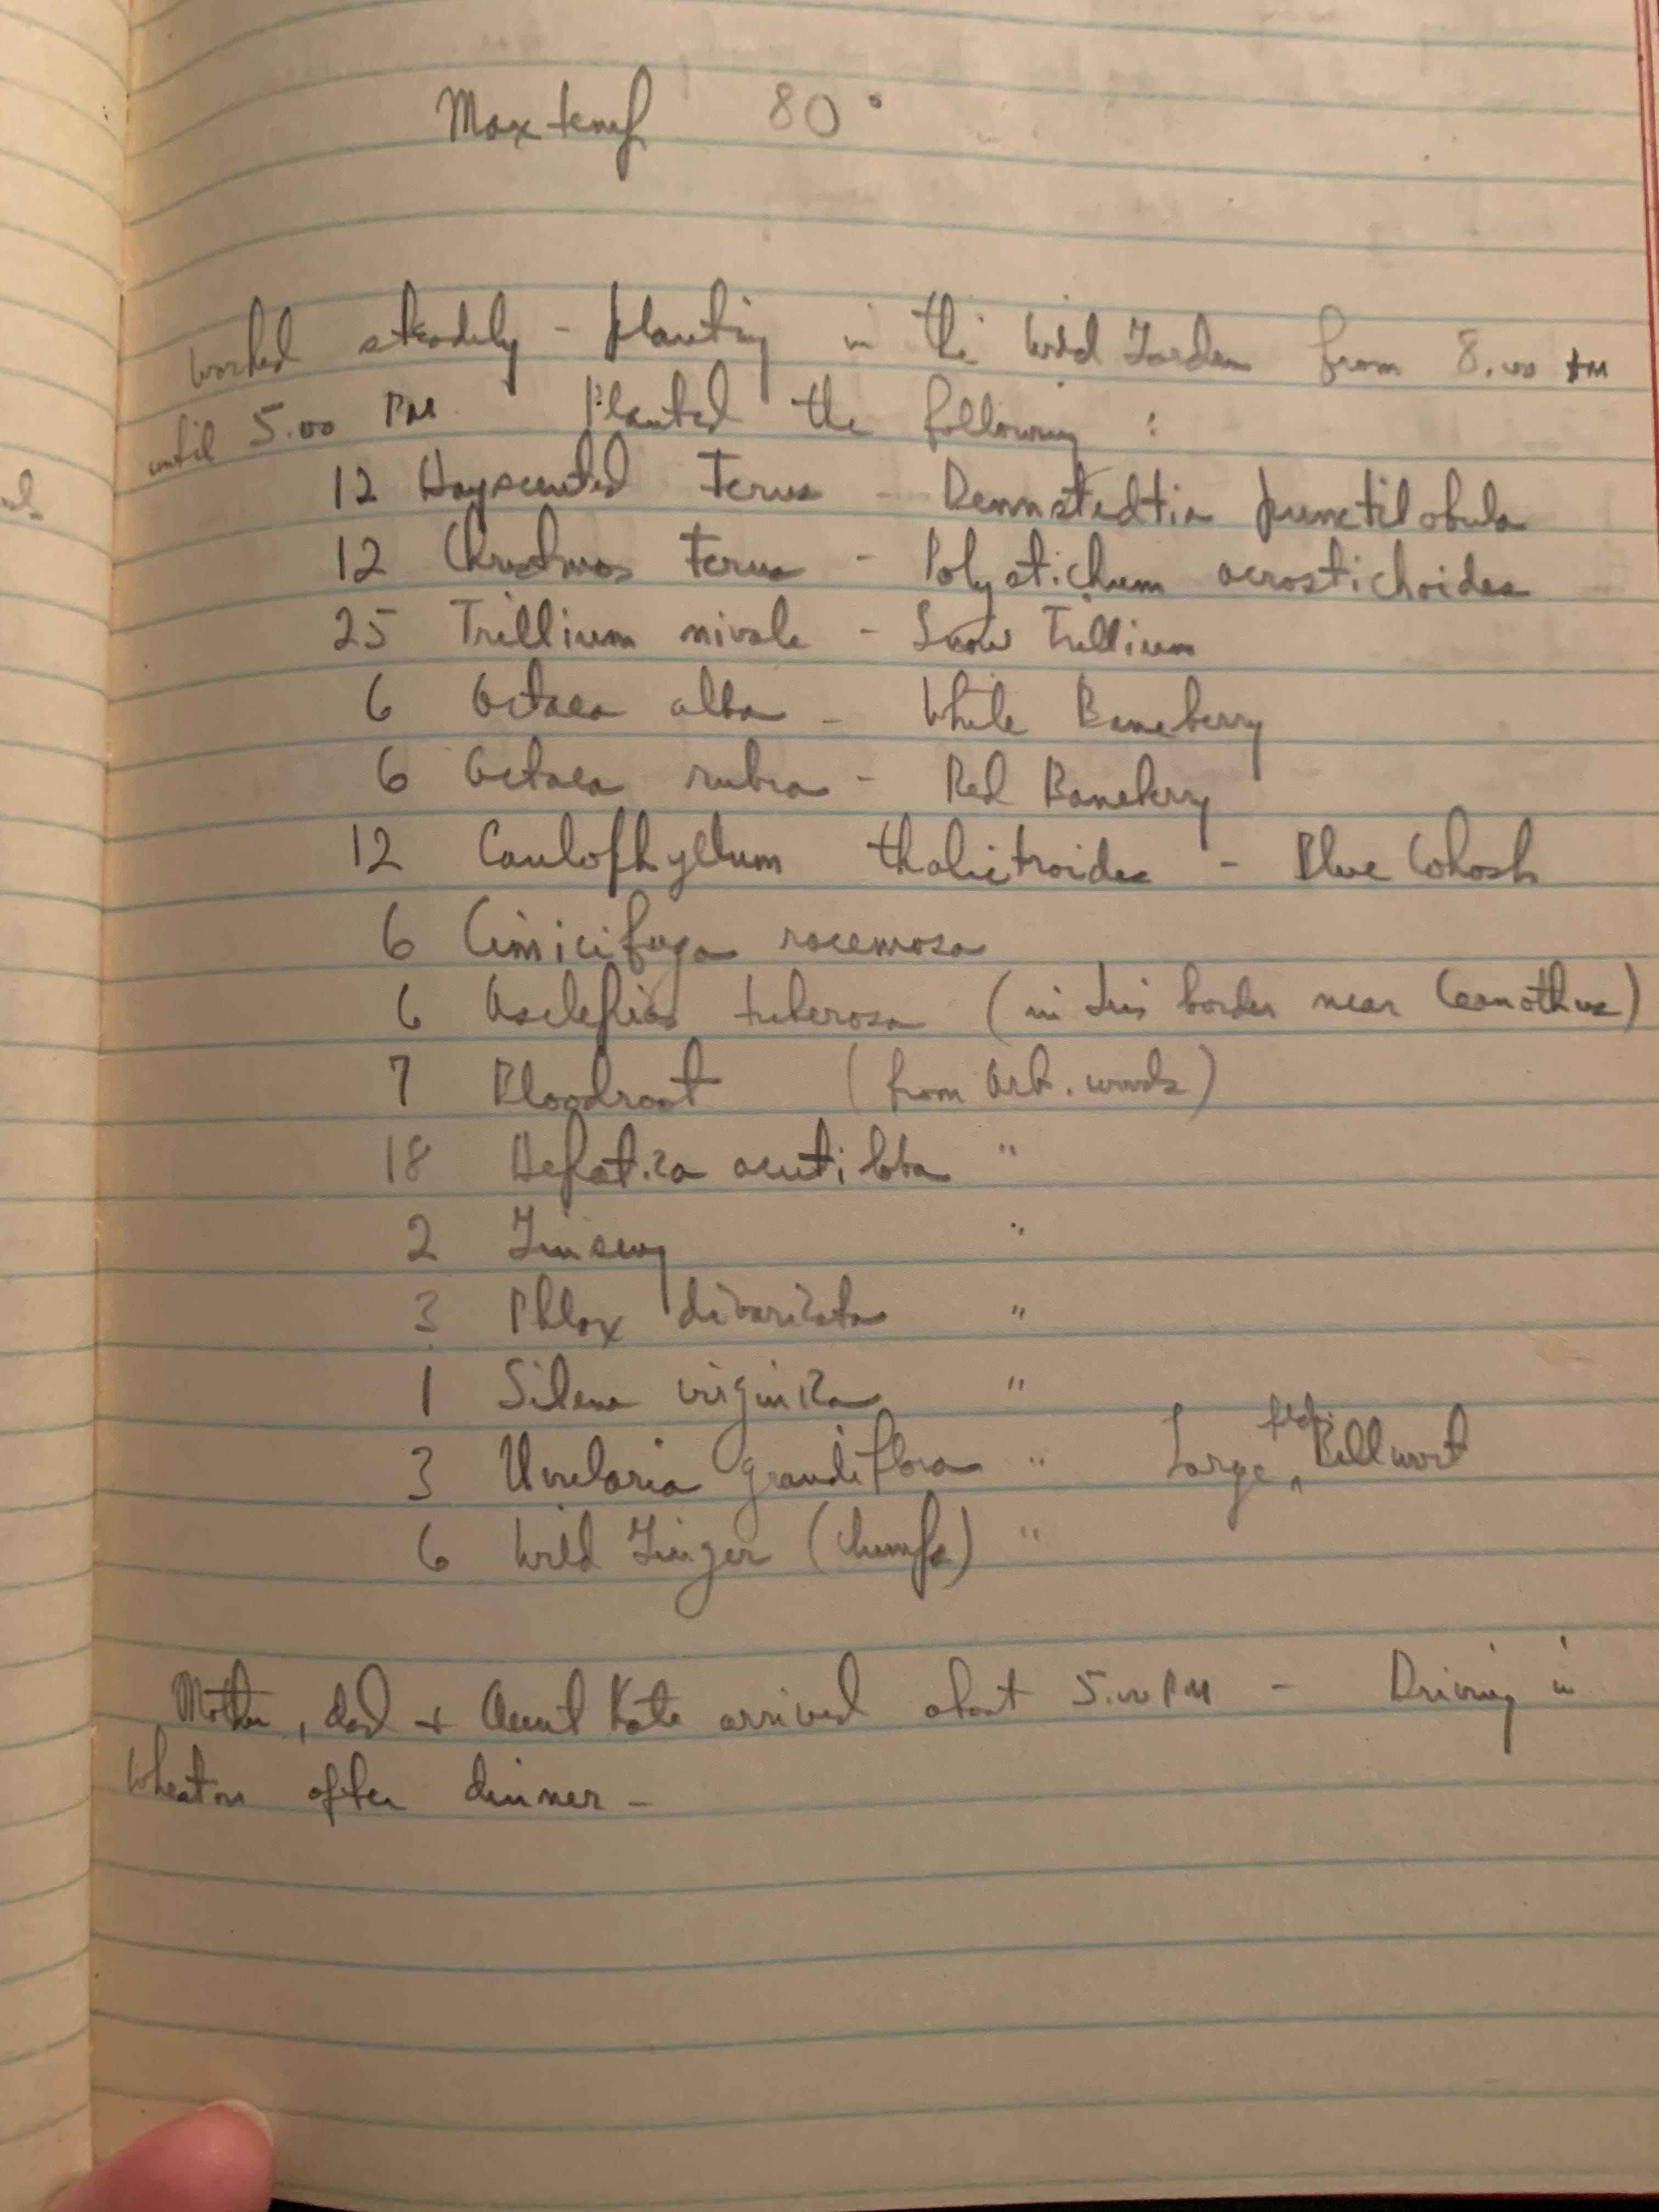 Max temp 80°
Worked steadily - planting in the Wild Garden from 8.00 AM
until 5.00 PM. Planted the following :
12 Hayscented Ferns - Dennstedtia punctilobula
12 Christmas Ferns - Polystichum acrostichoides
25 Trillium nivale - Snow Trillium
6 Actaea alba - White Baneberry
6 Actaea rubra - Red Baneberry
12 Caulophyllum thalictroides - Blue Cohosh
6 Cimicifuga racemosa
6 Asclepias tuberosa (in Iris border near Ceanothus)
7 Bloodroot (from Arb. woods)
18 Hepatica acutiloba "
2 Ginseng "
3 Phlox divaricata "
1 Silene virginica "
3 Uvularia grandiflora " Large ^ Bellwort
6 Wild Ginger (clumps) "
Mother, Dad + Aunt Kate arrived about 5.00 PM - Driving in
Wheaton after dinner -